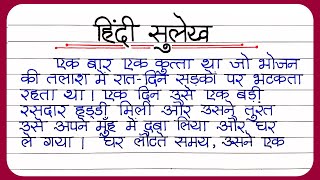 हिंदी सुलेख
एक बार एक कुत्ता था जो भोजन
की तलाश में रात-दिन सड़कों पर भटकता
रहता था। एक दिन उसे एक बड़ी
रसदार हड्डी मिली और उसने तुरंत
उसे अपने मुँह में दबा लिया और घर
ले गया। घर लौटते समय, उसने एक